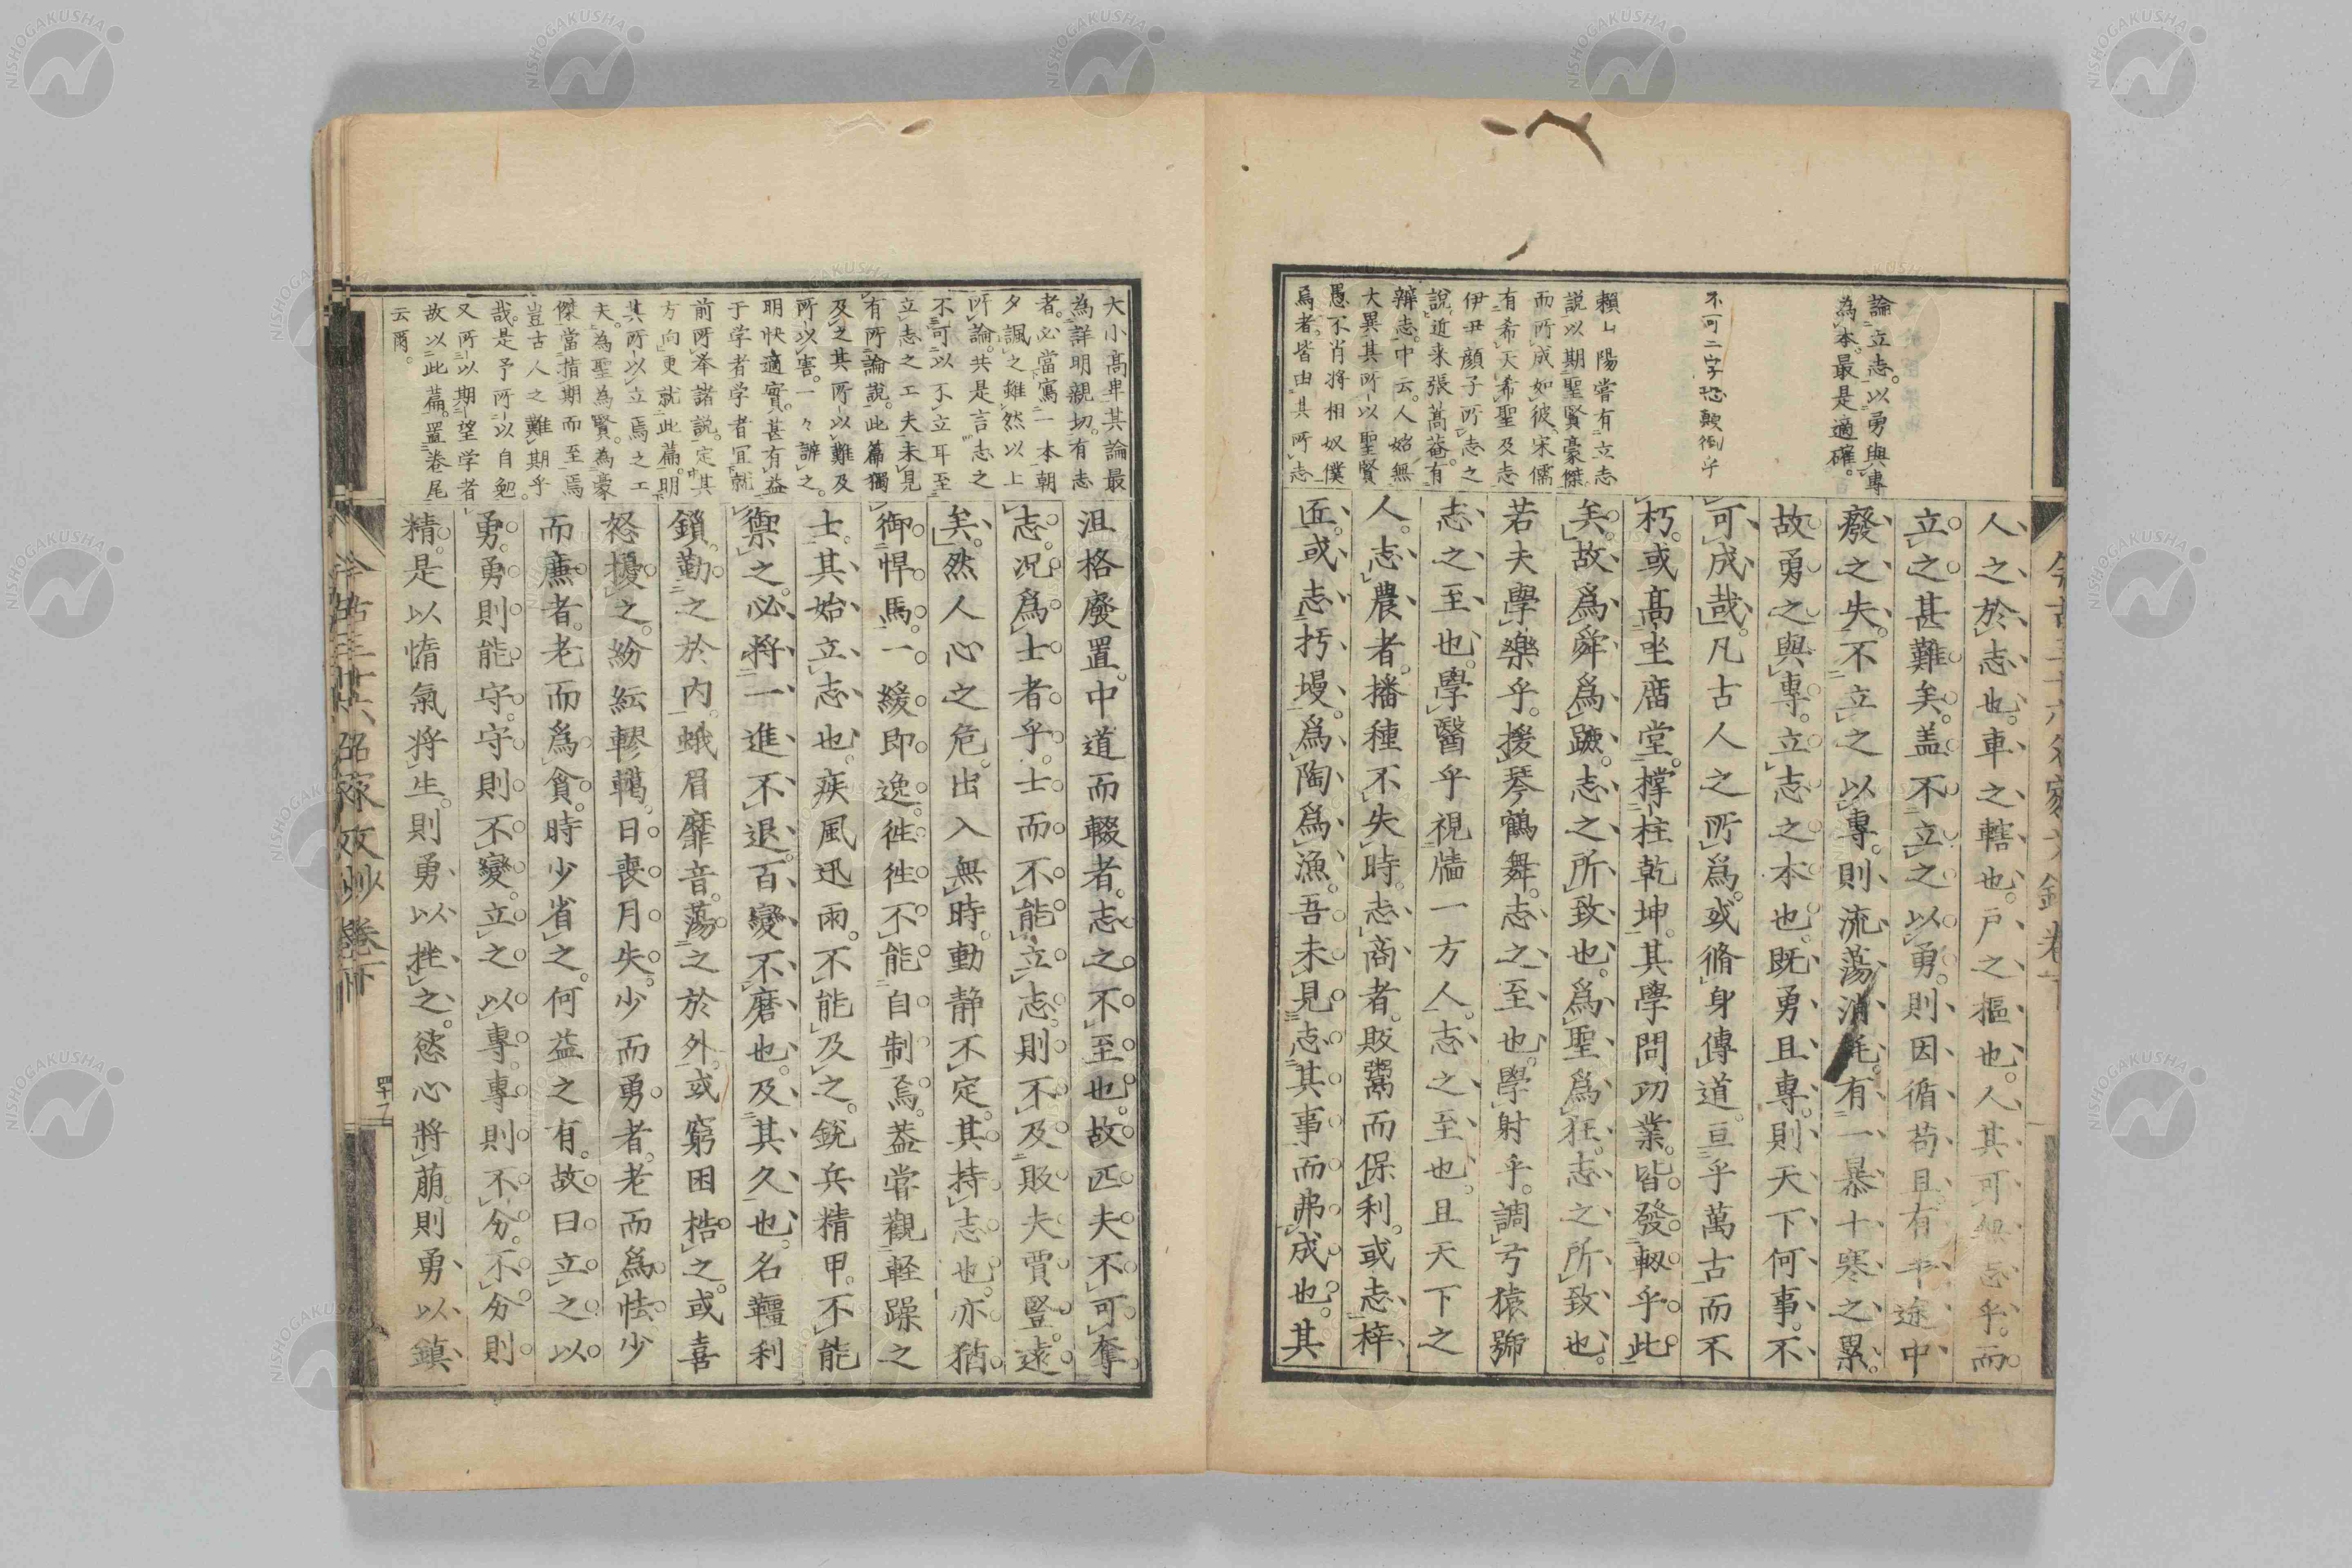 論立志。以勇與專
為本。最是適確。
不可二字恐顛倒乎
賴山陽嘗有立志
説以期聖賢豪傑。
而所成如彼。宋儒
有希天希聖及志
伊尹顔子所志之
説。近来張蒿菴。有
辨志。中云。人始無
大異其所以聖賢
愚不肖將相奴僕
焉者。皆由其所志
人之於志也。車之轄也。戸之樞也。人其可無志乎。而
立之甚難矣。盖不立之以勇。則因循苟且。有半途中
廢之失。不立之以專。則流蕩消耗。有一暴十寒之累。
故勇之與專。立志之本也。既勇且專。則天下何事。不
可成哉。凡古人之所爲。或脩身傳道。亘乎萬古而不
朽。或高坐庿堂。撑柱乾坤。其學問功業。皆發軔乎此
矣。故爲舜爲蹶。志之所致也。爲聖爲狂。志之所致也。
若夫學樂乎。援琴鶴舞。志之至也。學射乎。調弓猿號
志之至也。學醫乎視牆一方人。志之至也。且天下之
人。志農者。播種不失時。志商者。販鬻而保利。或志梓
匠。或志圬墁。爲陶爲漁。吾未見志其事而弗成也。其
大小高卑其論最
為詳明親切。有志
者。必當寫一本朝
夕諷之雖然以上
所論。共是言志之
不可以不立耳至
立志之工夫未見
有所論説。此篇獨
及之其所以難及
所以害。一々辨之。
明快適實。甚有益
于学者学者冝就
前所奉諸説。定其
方向更就此篇。明
其所以立焉之工
夫。為聖為賢。為豪
傑當指期而至焉
豈古人之難期乎
哉。是予所以自勉。
又所以期望学者
故以此篇。置卷尾
云爾。
沮格廢置。中道而輟者。志之不至也。故匹夫不可奪
志。况爲士者乎。士而不能立志。則不及販夫賈豎遠
矣。然人心之危。出入無時。動静不定。其持志也。亦猶
御悍馬。一緩即逸。徃徃不能自制焉。葢嘗觀輕躁之
士。其始立志也。疾風迅雨。不能及之。銳兵精甲。不能
禦之。必將一進不退。百變不磨也。及其久也。名韁利
鎖。勤之於内。蛾眉靡音。蕩之於外。或窮困梏之。或喜
怒擾之。紛紜轇轕。日喪月失。少而勇者。老而爲怯少
而廉者。老而爲貪。時少省之。何益之有。故曰。立之以
勇。勇則能守。守則不變。立之以專。專則不分。不分則
精。是以惰氣將生。則勇以挫之。慾心將萠。則勇以鎮
今古三十六名家文抄卷下
四十一